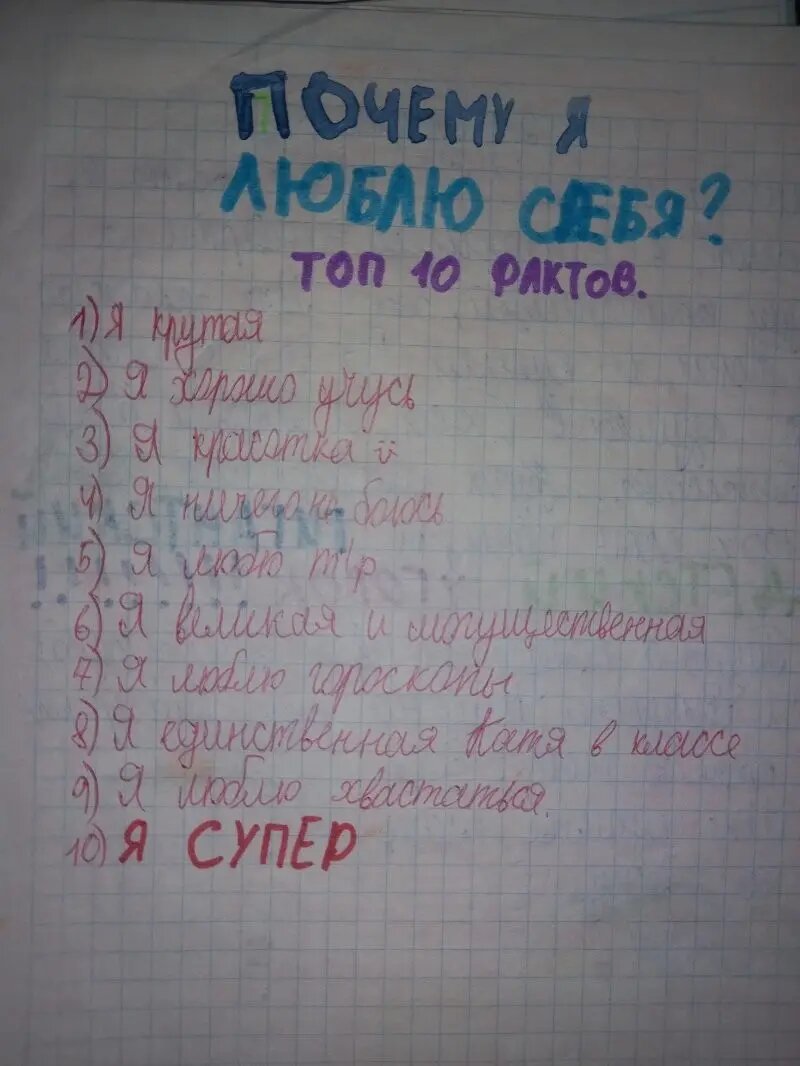 ПОЧЕМУ Я
ЛЮБЛЮ СЕБЯ?
ТОП 10 ФАКТОВ.
1) Я крутая
2) Я хорошо учусь
3) Я красотка
4) Я ничего не боюсь
5) Я люблю
6) Я великая и могущественная
7) Я люблю гороскопы
8) Я единственная Катя в классе
9) Я люблю хвастаться.
10) Я СУПЕР